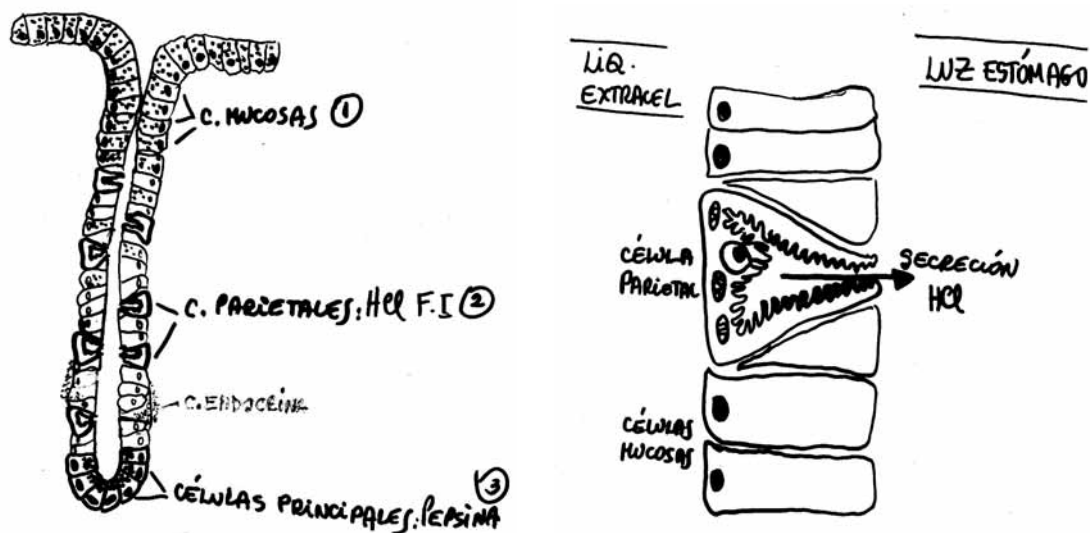 C. MUCOSAS ①
C. PARIETALES: HCl F.I ②
C. ENDOCRINA
③
CÉLULAS PRINCIPALES: PEPSINA
LiQ.
EXTRACEL
LUZ ESTÓMAGO
CÉLULA
PARIETAL
SECRECIÓN
HCl
CÉLULAS
MUCOSAS